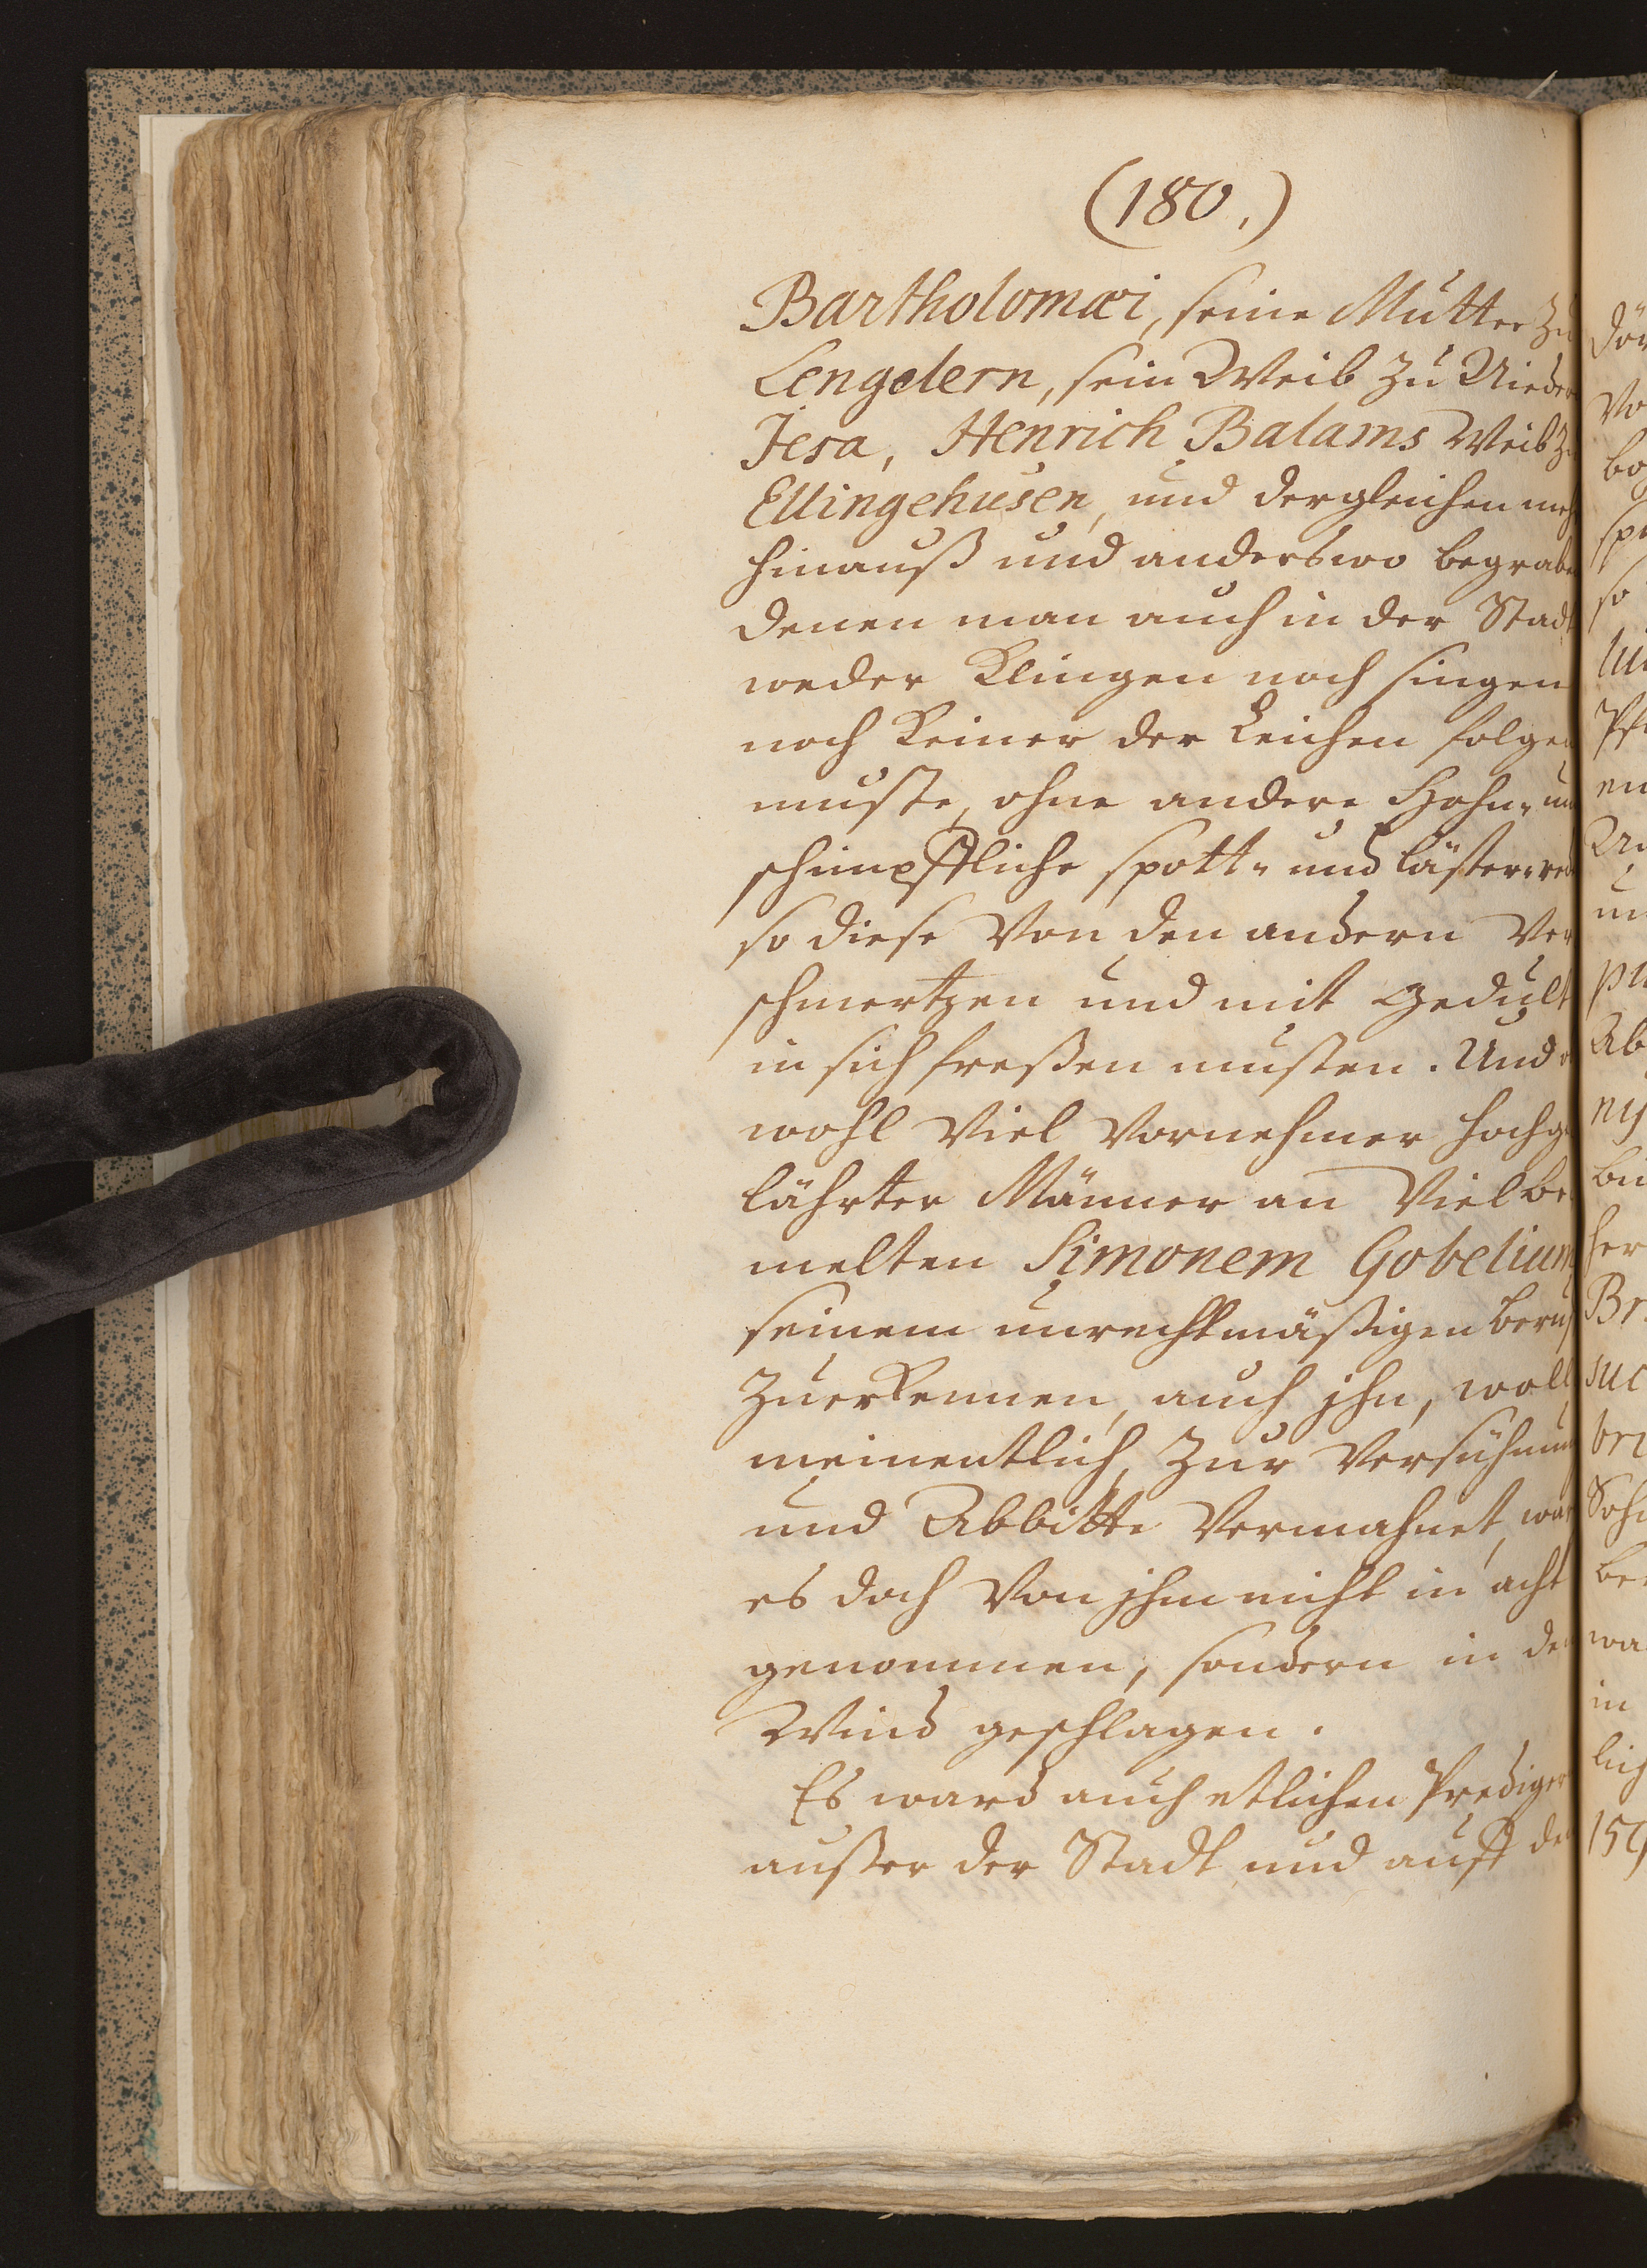 (180.)
Bartholomæi, seine Mutter zu
Lengelern, sein Weib zu Nieder
Jesa, Henrich Balams Weib zu
Ellingehusen, und dergleichen meh
hinauß und anderswo begrabe
denen man auch in der Stadt
weder Klingen noch singen
noch Keiner der Leichen folgen
muste, ohne andere Hohn- und
schimpffliche spott- und läster-red
so diese Von den andern Ver
schmertzen und mit Gedult
in sich freßen musten. Und
wohl Viel Vornehmer hochge
lährter Männer an Vielbe
melten Simonem Gobelium
seinem unrechtmäßigen beruf
Zuerkennen, auch jhn, woll
meinentlich, zur Versühnung
und Abbitte Vermahnet, war
es doch Von jhm nicht in acht
genommen, sondern in den
Wind geschlagen.
Es ward auch etlichen Prediger
außer der Stadt und auff de